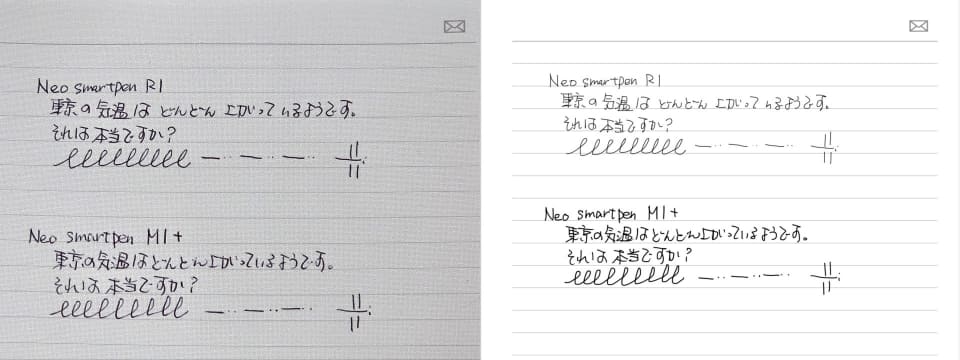 Neo smartpen R1
東京の気温はどんどん上がっているようです。
それは本当ですか?
Neo smartpen M1+
東京の気温はどんどん上がっているようです。
それは本当ですか?
Neo smartpen R1
東京の気温はどんどん上がっているようです。
それは本当ですか?
Neo smartpen M1+
東京の気温はどんどん上がっているようです。
それは本当ですか?